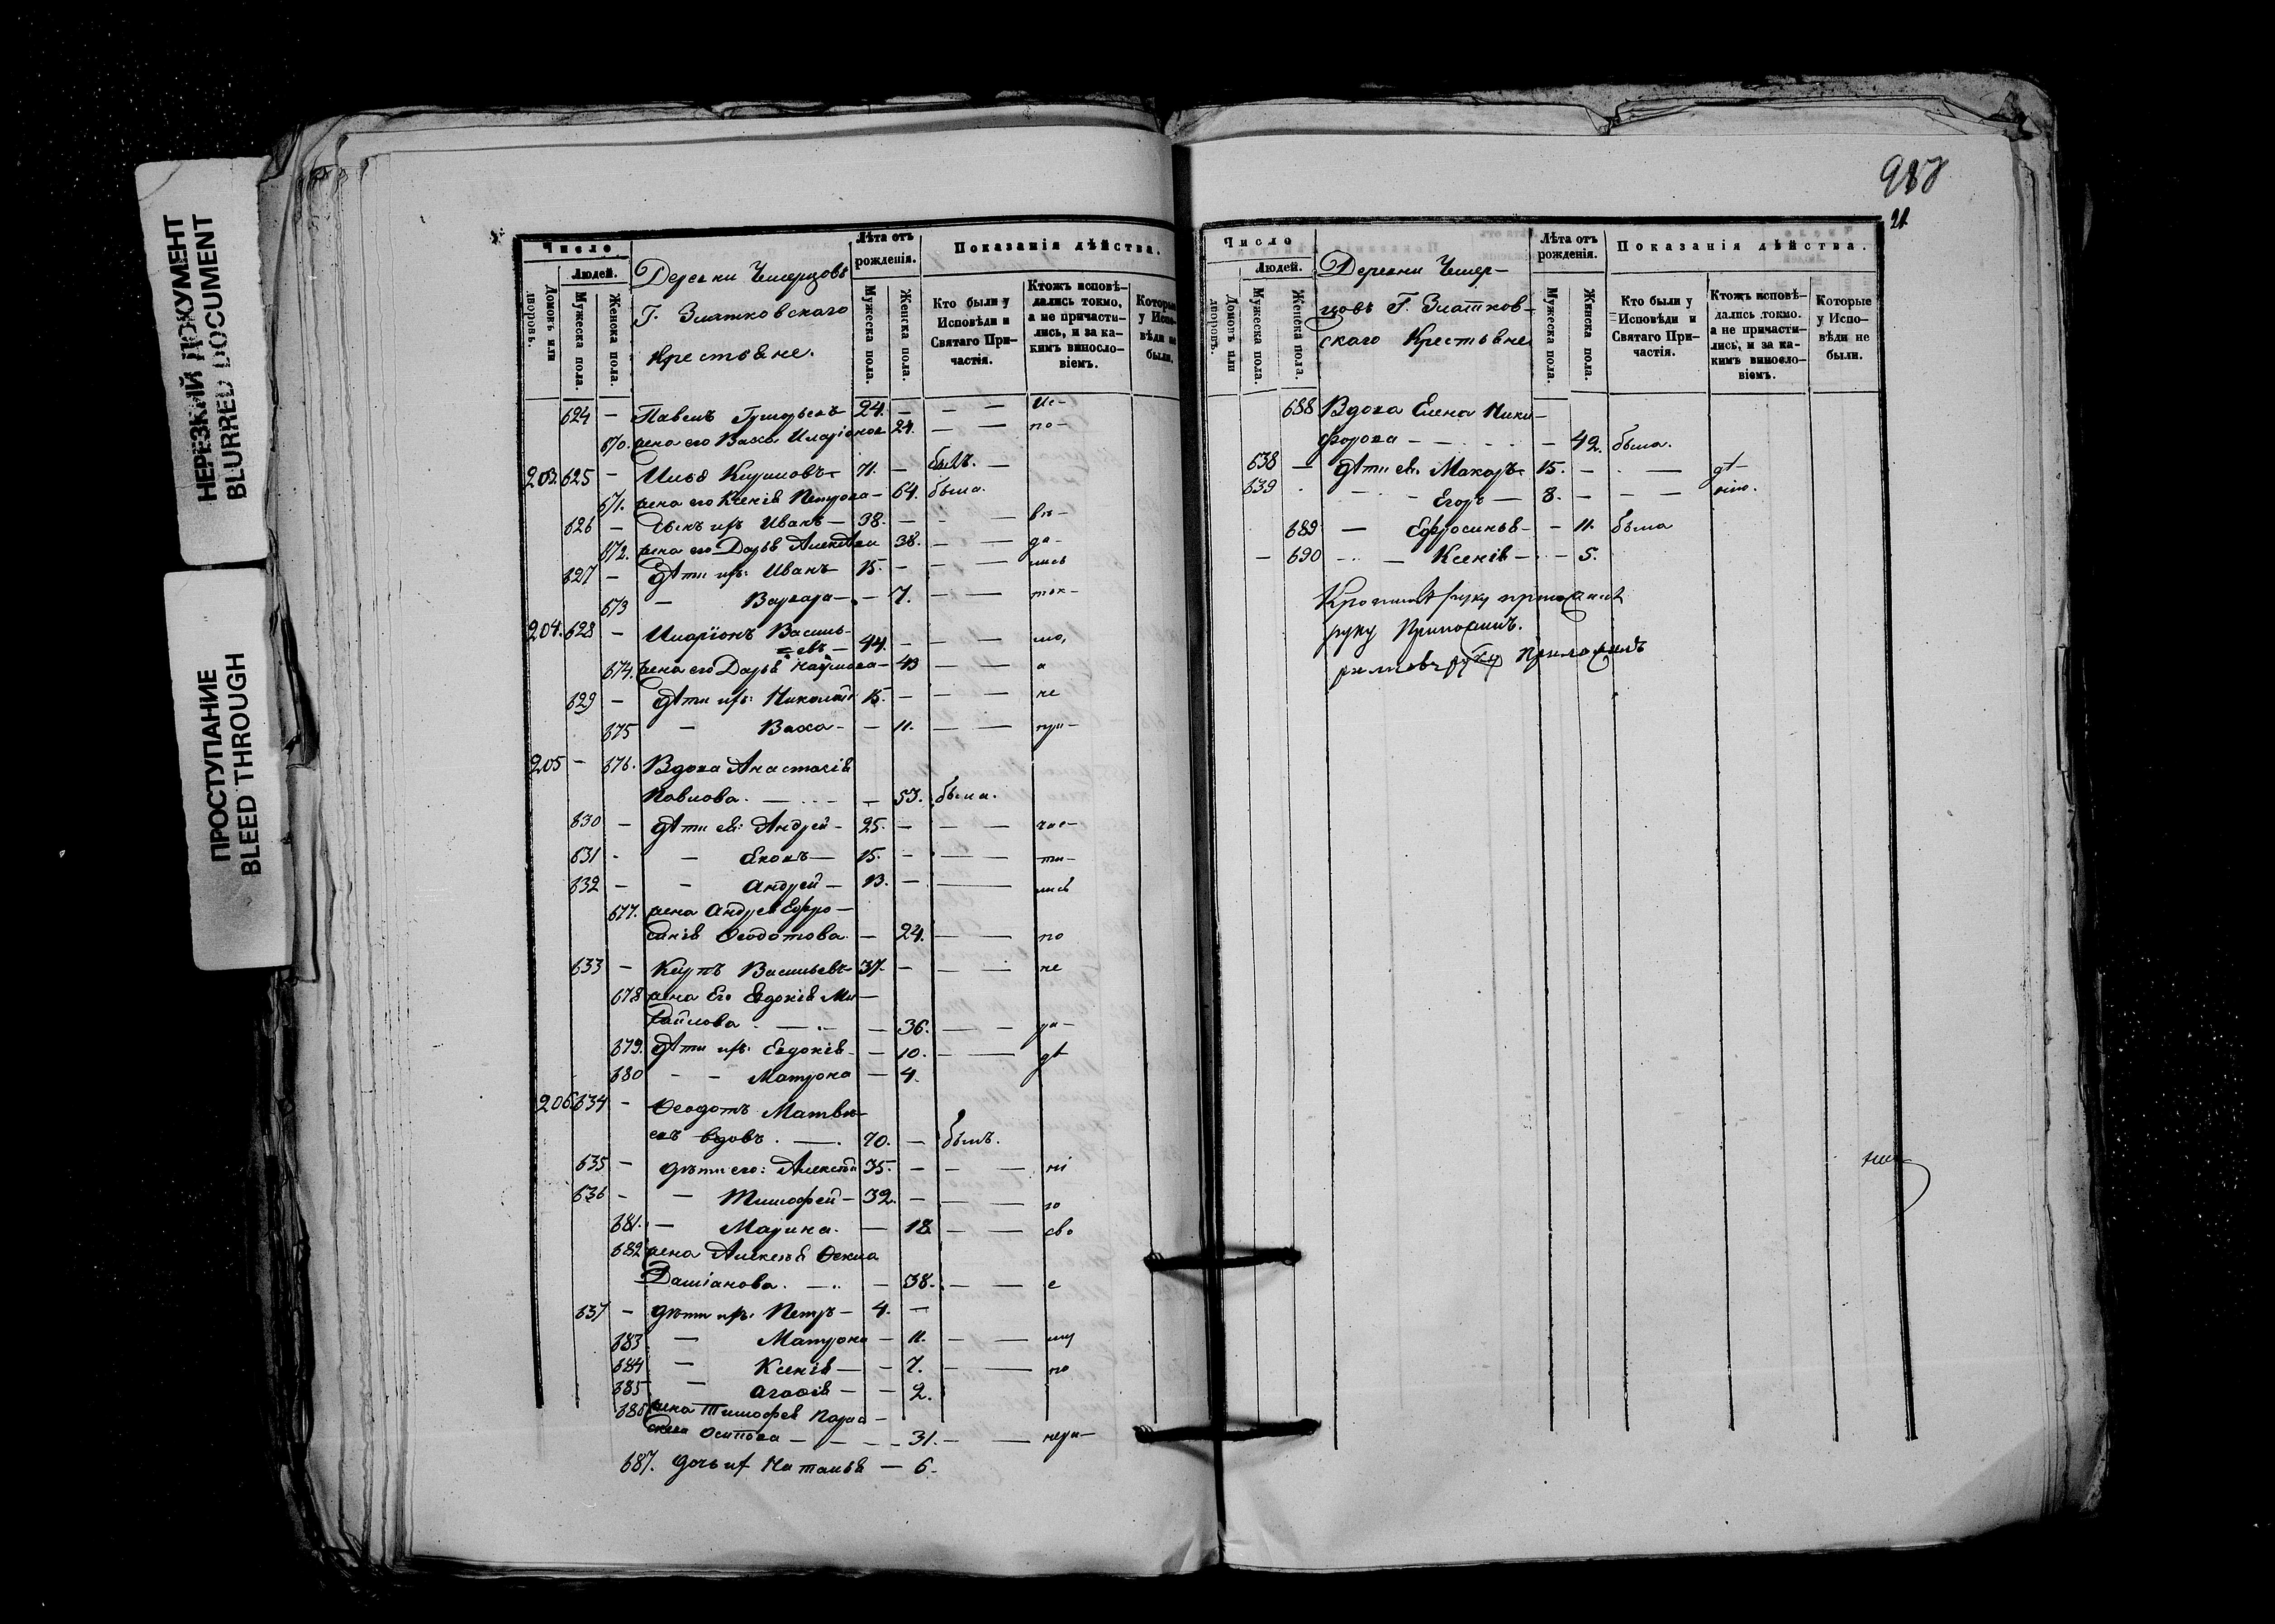 НЕРЕЗКИЙ ДОКУМЕНТ
BLURRED DOCUMENT
ПРОСТУПАНИЕ
BLEED THROUGH
Число
Людей.
Домовъ или дворовъ.
Мужеска пола.
Женска пола.
Деревни
Г. Златковскаго
Крестьяне.
Лѣта отъ рожденія.
Мужеска пола.
Женска пола.
Показанія дѣйства.
Кто были у Исповѣди и Святаго Причастія.
Ктожъ исповѣ-
дались токмо,
а не причасти-
лись, и за ка-
кимъ винословіемъ.
Которые
у Испо-
вѣди не
были.
624 — Павелъ Григорьевъ 24. — — — Ис-
670. жена его Васса Иларіонова 24. — — по-
203. 625 — Илья Кириловъ 71. — былъ. —
671. жена его Ксенія Петрова — 64. была.
626 — сынъ ихъ Иванъ — 38. — — вѣ-
672. жена его Дарья Алексѣева 38. — — да-
627 — дѣти ихъ: Иванъ — 15. — — — лись
673 — Варвара — — 7. — — ток-
204. 628 — Иларіонъ Василь-
евъ — 44. — — — мо,
674. жена его Дарья Наумова — 43 — — а
629 — дѣти ихъ: Николай 15. — — — не
675 — Васса — — 11. — — при-
205 — 676. Вдова Анастасія
Павлова. — — 53. была.
630 — дѣти ея: Андрей — 25. — — — час-
631 — — 15. — — — ти-
632 — — Андрей — 13. — — лись
677. жена Андрея Ефро-
синія Ѳеодотова — 24. — — по
633 — Карпъ Васильевъ 37. — — — не
678 жена Его Евдокія Ми-
хайлова — — 36. — — ра-
679. дѣти ихъ: Евдокія — — 10. — — дѣ
680 — — Матрона — 4.
206. 634 — Ѳеодотъ Матвѣ-
евъ вдовъ. — 70. — былъ.
635 — дѣти его: Алексѣй 35. — — — ні
636 — — Тимофей — 32. — — — ю
681. — Марина. — 18 — — сво
682 жена Алексѣя Ѳекла
Даміанова. — — 38. — — е
637 — дѣти ихъ: Петръ — 4. —
683 — Матрона — 11. — — му
684 — Ксенія — — 7. — — по
685 — Агафія — — 2.
686 жена Тимофея Парас-
кева Осипова — — 31. — — нера-
687. дочь ихъ Наталья — 6.
987
21.
Число
Людей.
Домовъ или дворовъ.
Мужеска пола.
Женска пола.
Деревни
Г. Златков-
скаго Крестьяне
Лѣта отъ рожденія.
Мужеска пола.
Женска пола.
Показанія дѣйства.
Кто были у
Исповѣди и
Святаго При-
частія.
Ктожъ исповѣ-
дались токмо.
а не причасти-
лись, и за ка-
кимъ виносло-
віемъ.
Которые
у Испо-
вѣди не
были.
688 Вдова Елена Ники-
форова — — — 42. была.
638 — дѣти ея: Макаръ 15. — — дѣ-
639 — Егоръ — 8. — — — нію.
689 — Ефросинья — — 11. была
— 690 — Ксенія — — 5.
руку
руку Приложилъ.
руку Приложилъ